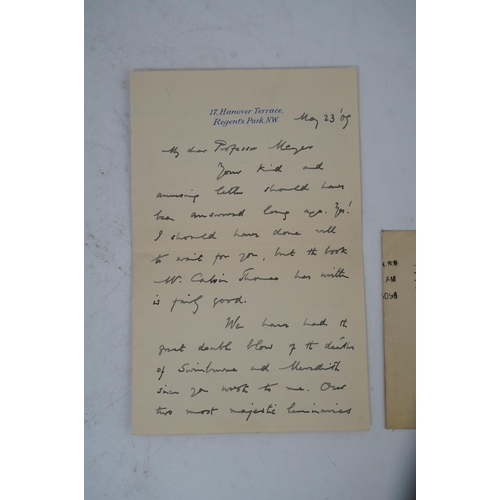 17, Hanover Terrace,
Regents Park, N.W.
May 23 '09
My dear Professor Meyer
Your kind and
amusing letter should have
been answered long ago. Yes!
I should have done well
to wait for you, but the book
Mr. Calvin Thomas has written
is fairly good.
We have had the
great double blow of the deaths
of Swinburne and Meredith
since you wrote to me. Our
two most majestic luminaries
AM